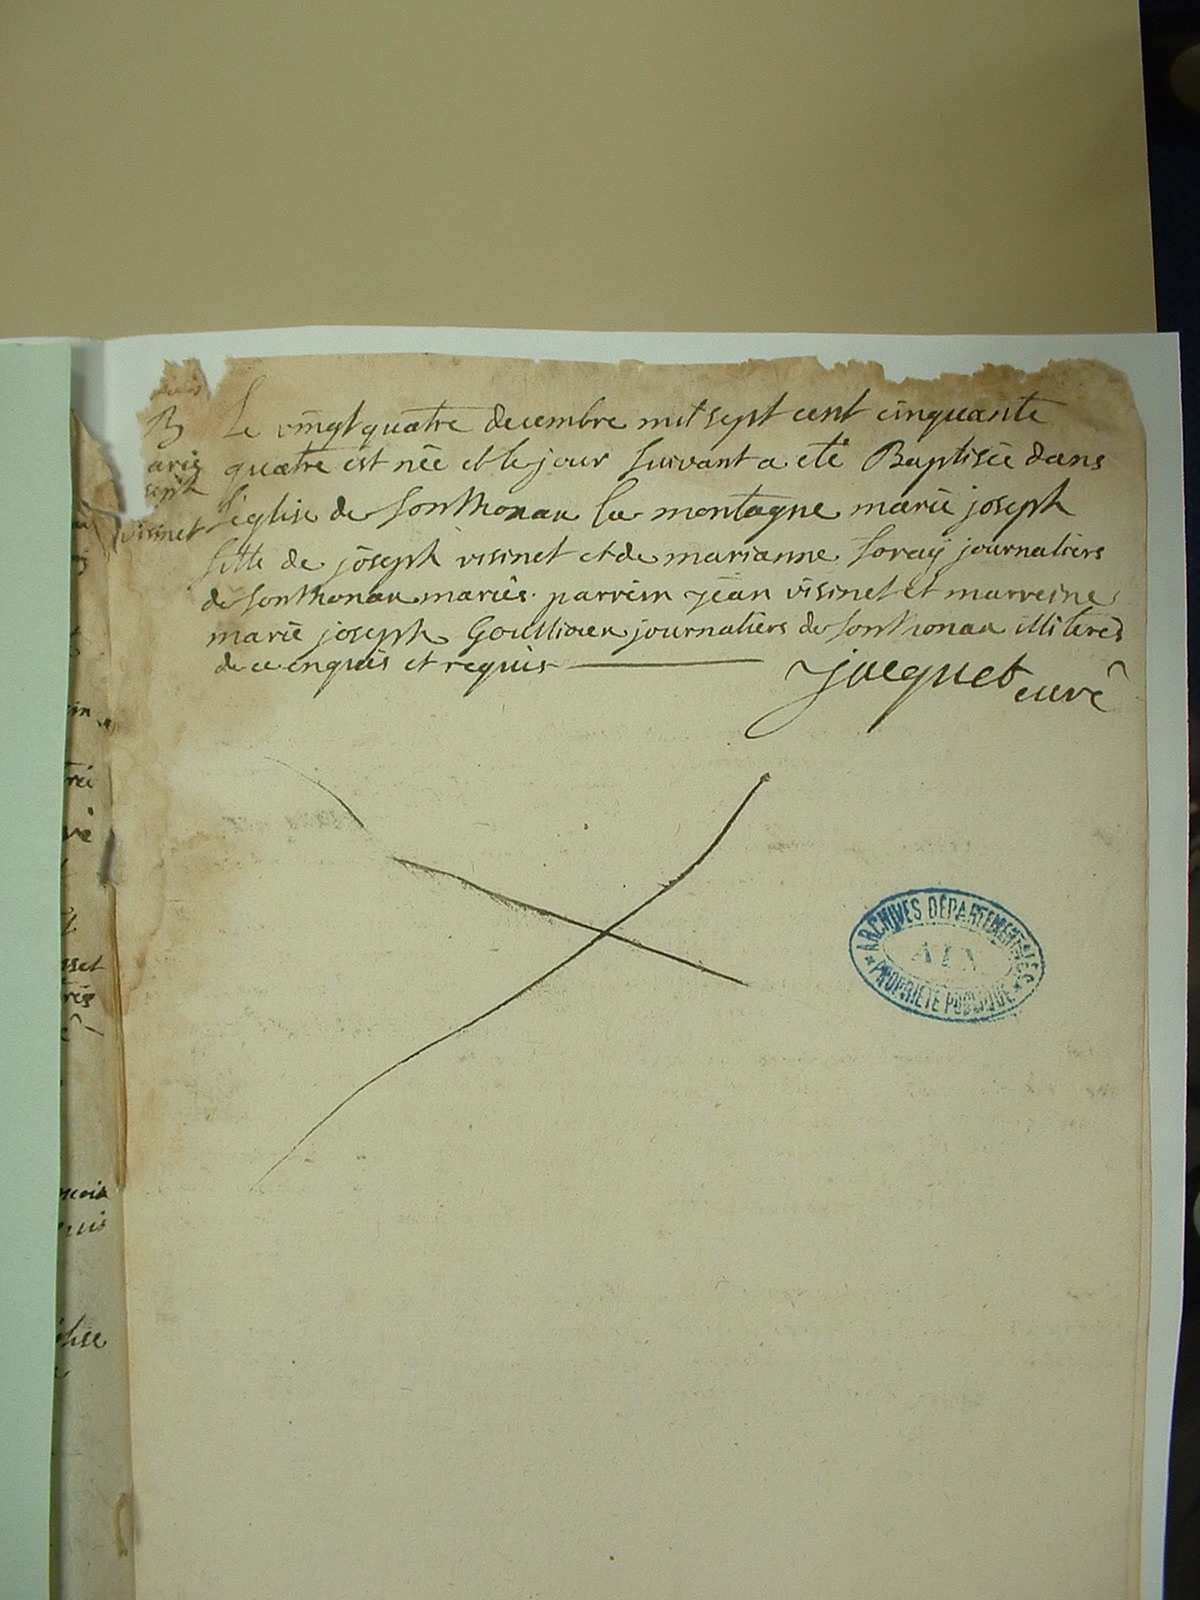 B
arie
seph
visinet
Le vingt quatre decembre mil sept cent cinquante
quatre est née et le jour suivant a eté Baptisée dans
l'église de Sonthonax la montagne marie joseph
fille de joseph visinet et de marianne Soray journaliers
de Sonthonax mariés. parrein jean visinet et marreine
marie joseph journaliers de Sonthonax illiterés
de ce enquis et requis
Jacquet curé
ARCHIVES DÉPARTEMENTALES
AIN
PROPRIÉTÉ PUBLIQUE